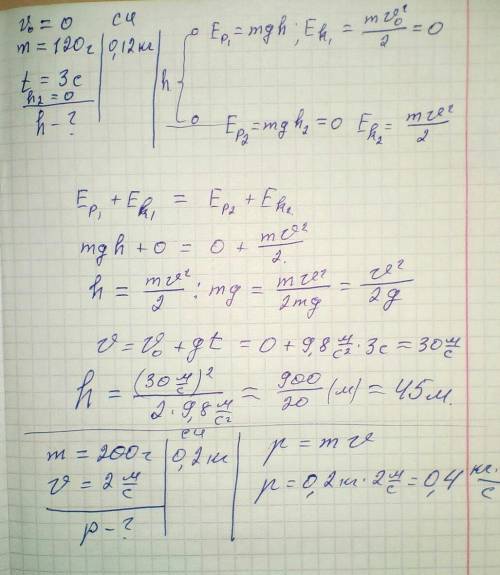 v₀ = 0 СИ
m = 120г | 0,12кг
t = 3с
h₂ = 0
h - ?
h
E_p₁ = mgh ; E_k₁ = mv₀²/2 = 0
E_p₂ = mgh₂ = 0 E_k₂ = mv²/2
E_p₁ + E_k₁ = E_p₂ + E_k₂
mgh + 0 = 0 + mv²/2
h = mv²/2 : mg = mv²/2mg = v²/2g
v = v₀ + gt = 0 + 9,8 м/с² · 3с = 30 м/с
h = (30 м/с)²/2 · 9,8 м/с² = 900/20 (м) = 45м.
СИ
m = 200г | 0,2кг
v = 2 м/с
p - ?
p = mv
p = 0,2кг · 2 м/с = 0,4 кг·/с